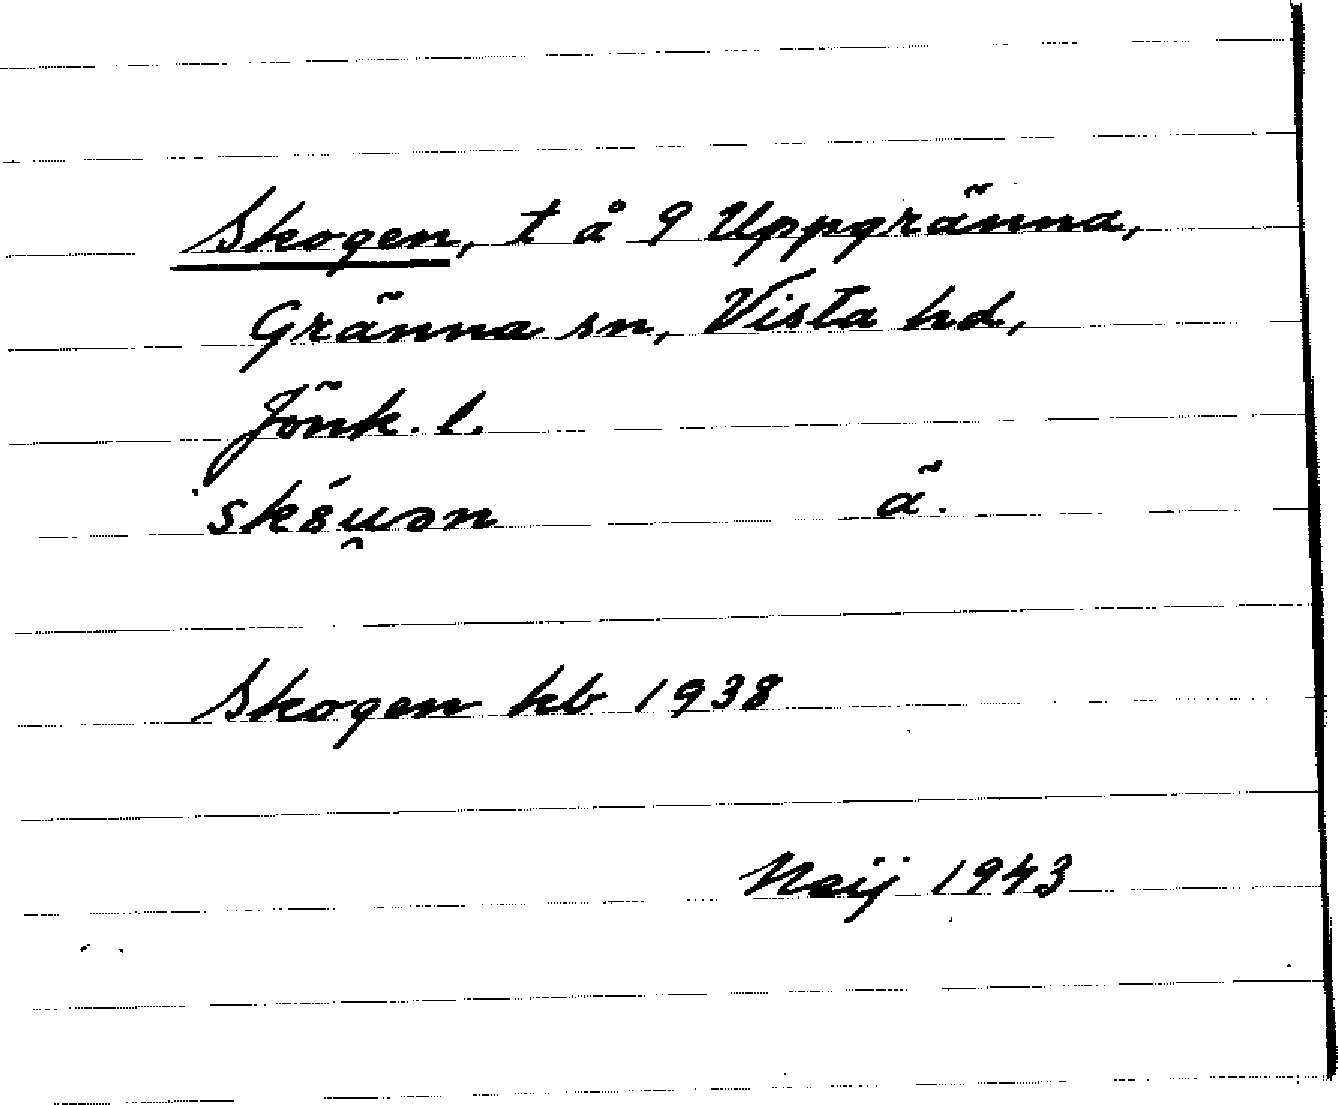 Skogen, t å 9 Uppgränna,
Gränna sn, Vista hd,
Jönk. l.
skó̤u̯ən ä.
Skogen kb 1938
Neij 1943